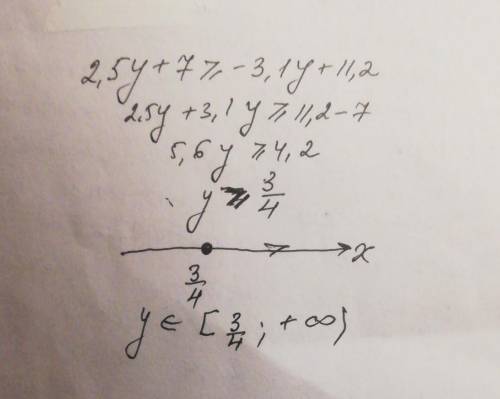 2,5y + 7 ≥ -3,1y + 11,2
2,5y + 3,1y ≥ 11,2 - 7
5,6y ≥ 4,2
y ≥ 3/4
x
3/4
y ∈ [3/4; +∞)